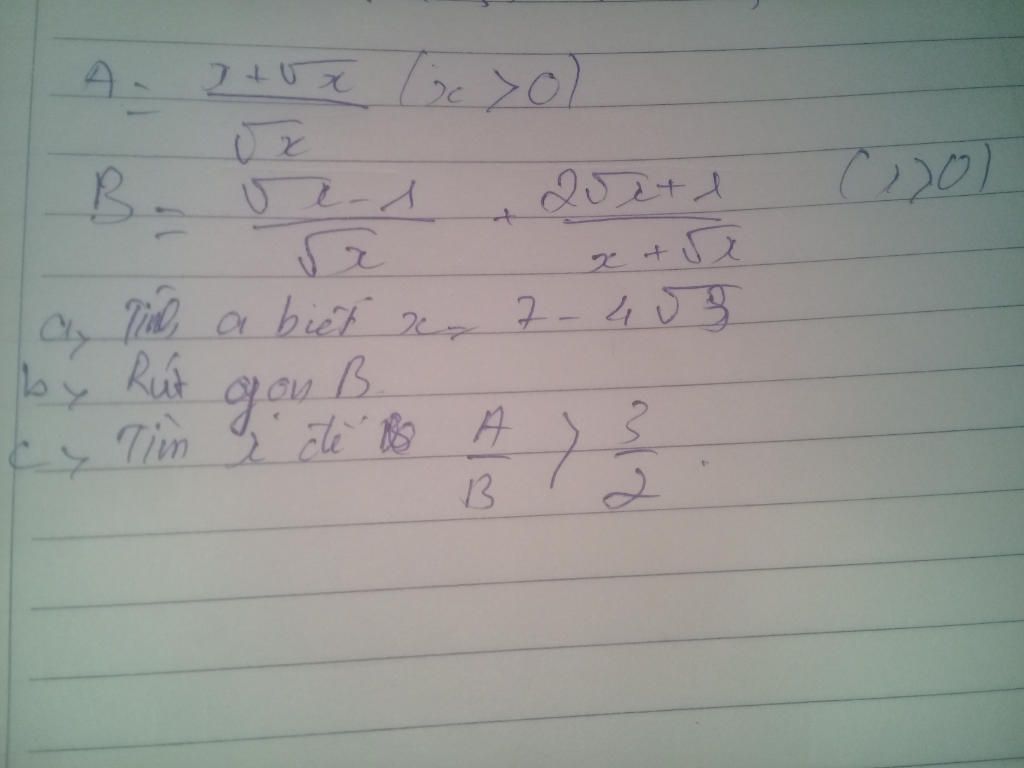 A = (x+√x)/√x (x > 0)
B = (√x - 1)/√x + (2√x + 1)/(x + √x) (x > 0)
a, Tính a biết x = 7 - 4√3
b, Rút gọn B.
c, Tìm x để A/B > 3/2.